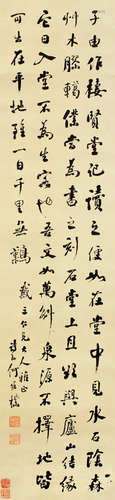 子由作棲賢堂記讀之便如在堂中見水石陰森
艸木膠轕僕當為書之刻石堂上且欲與廬山結緣
它日入堂不為生客也吾文如萬斛泉源不擇地皆
可出在平地雖一日千里無難
大人雅正
何紹基